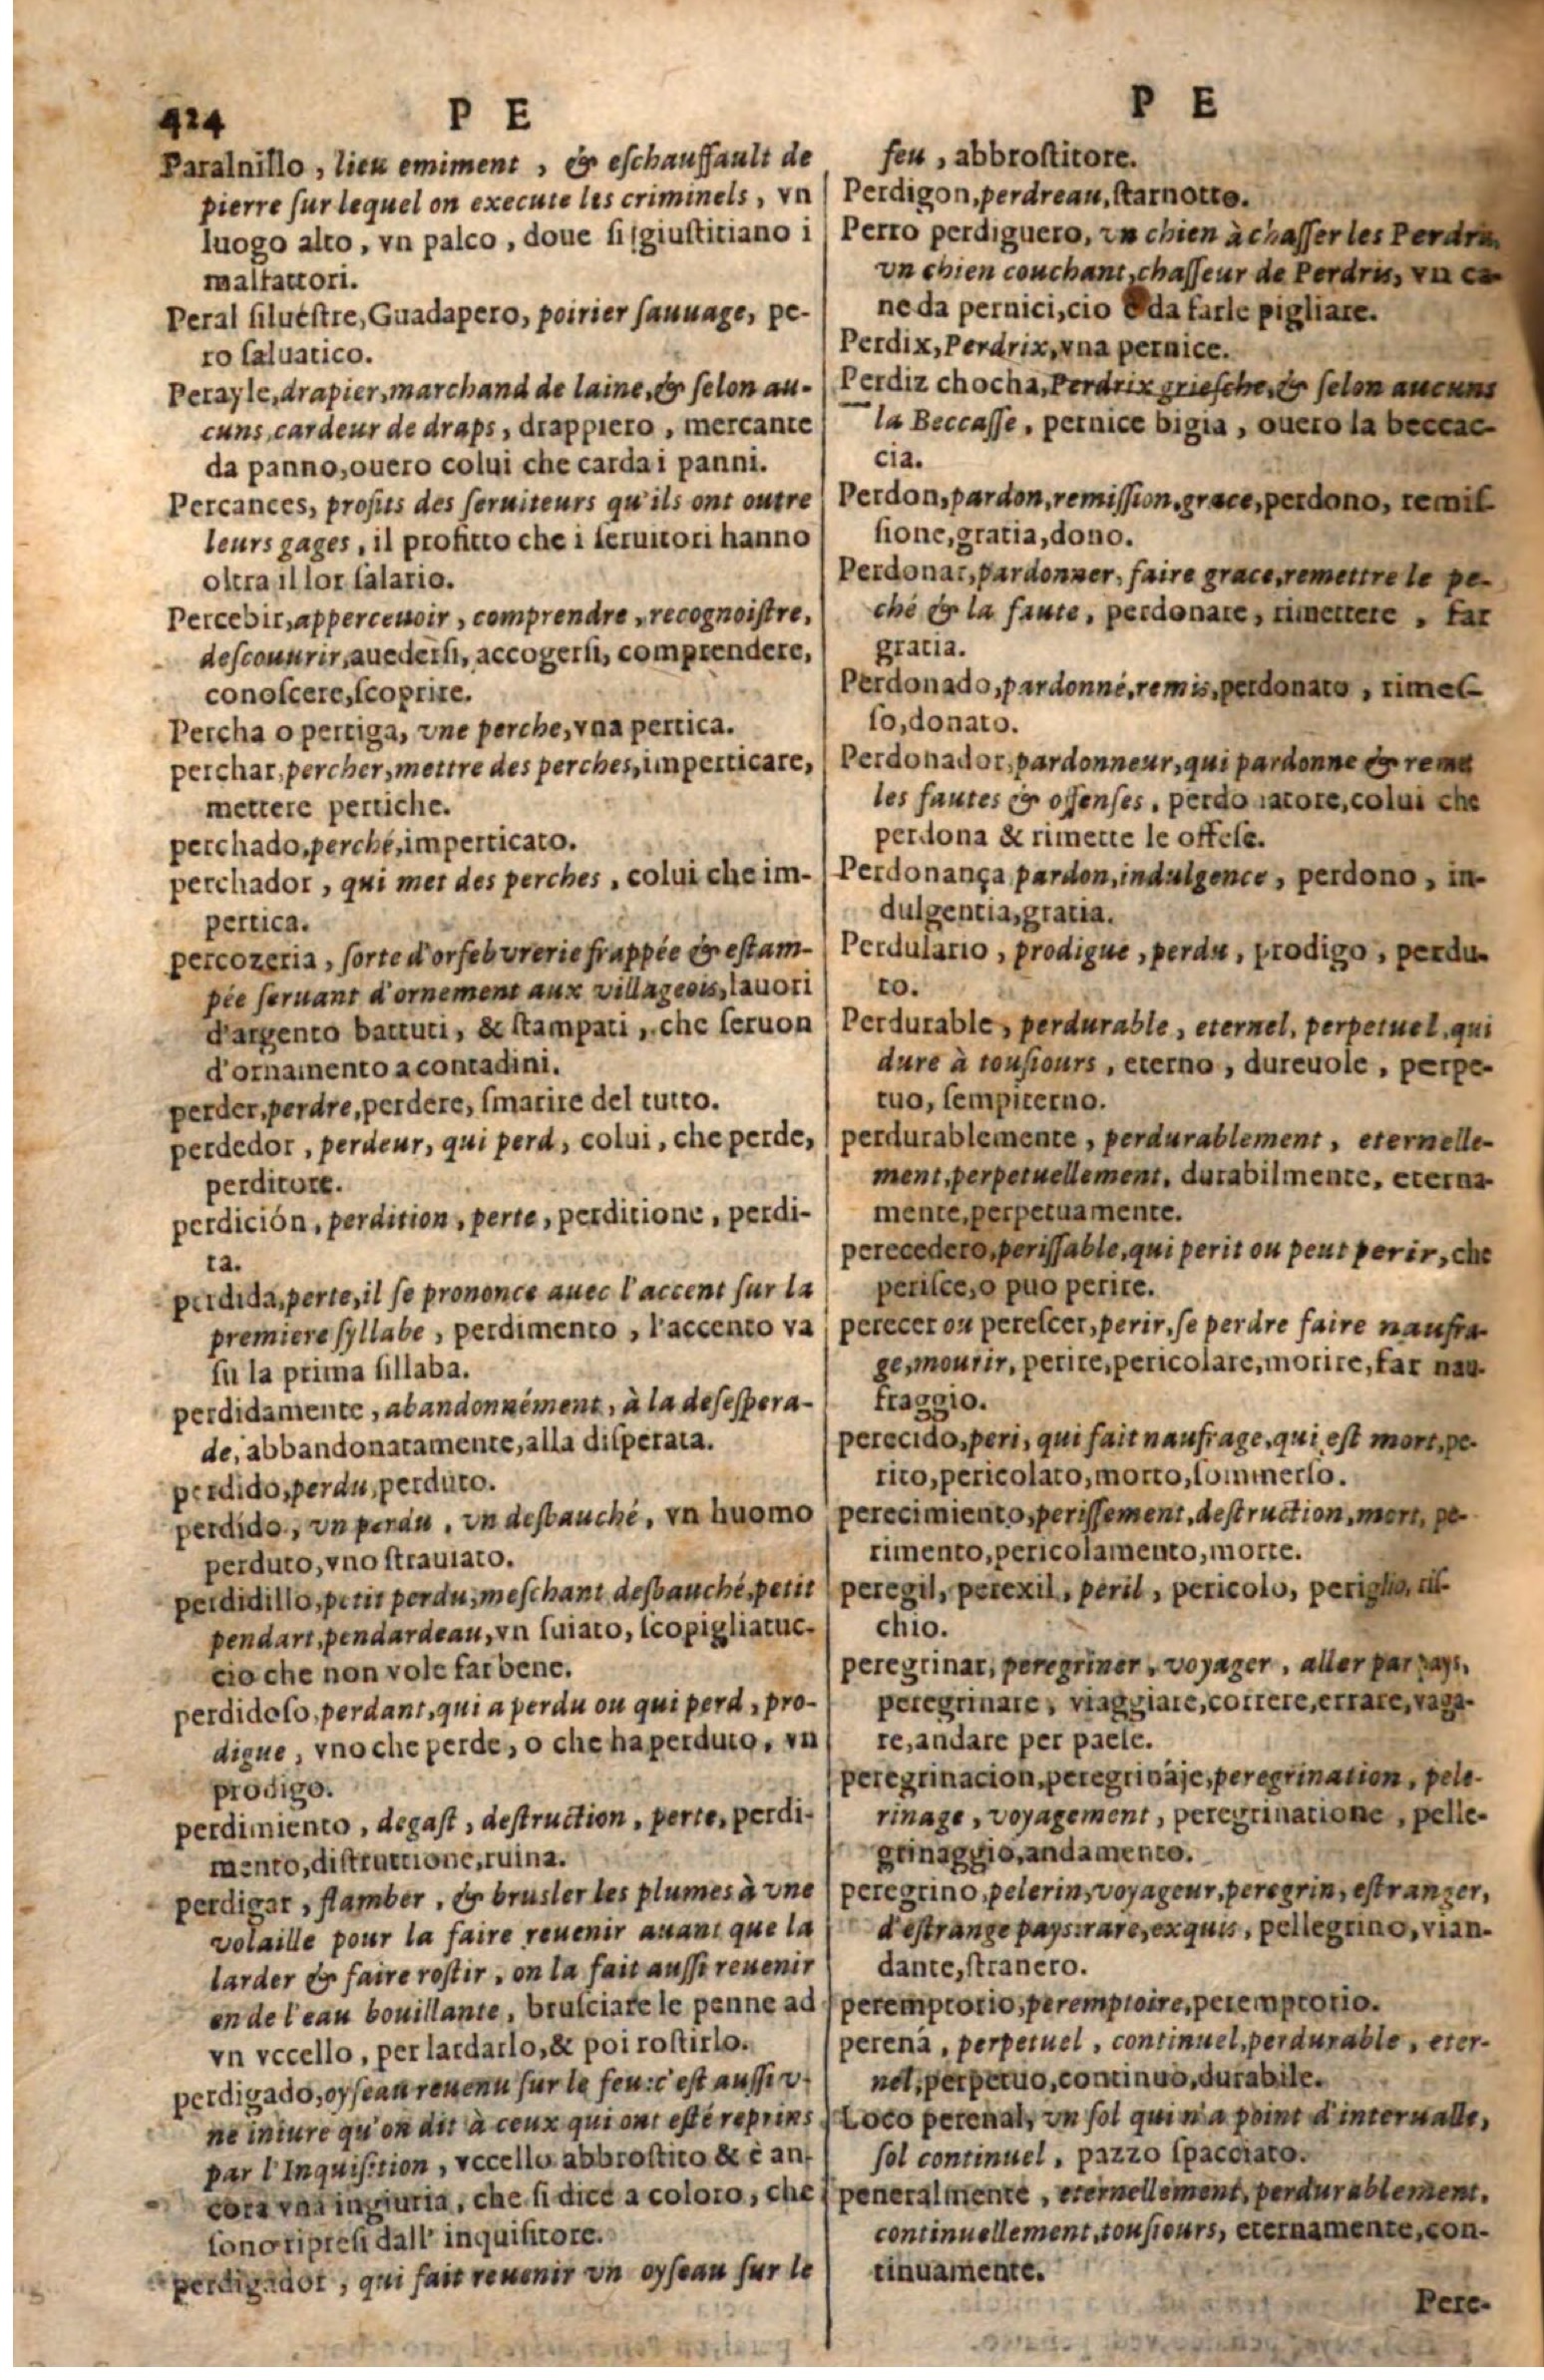 424 P E
Paralnillo, lieu emiment, & eſchauffault de
pierre ſur lequel on execute les criminels, vn
luogo alto, vn palco, doue ſi giuſtitiano i
malfattori.
Peral ſilueſtre, Guadapero, poirier ſauuage, pe-
ro ſaluatico.
Perayle, drapier, marchand de laine, & ſelon au-
cuns cardeur de draps, drappiero, mercante
da panno, ouero colui che carda i panni.
Percances, profits des ſeruiteurs qu'ils ont outre
leurs gages, il profitto che i ſeruitori hanno
oltra il lor ſalario.
Percebir, apperceuoir, comprendre, recognoiſtre,
deſcouurir, auederſi, accogerſi, comprendere,
conoſcere, ſcoprire.
Percha o pertiga, vne perche, vna pertica.
perchar, percher, mettre des perches, imperticare,
mettere pertiche.
perchado, perché, imperticato.
perchador, qui met des perches, colui che im-
pertica.
percozeria, ſorte d'orfebvrerie frappée & eſtam-
pée ſeruant d'ornement aux villageois, lauori
d'argento battuti, & ſtampati, che ſeruon
d'ornamento a contadini.
perder, perdre, perdere, ſmarire del tutto.
perdedor, perdeur, qui perd, colui, che perde,
perditore.
perdición, perdition, perte, perditione, perdi-
ta.
perdida, perte, il ſe prononce auec l'accent ſur la
premiere ſyllabe, perdimento, l'accento va
ſu la prima ſillaba.
perdidamente, abandonnément, à la deſeſpera-
de, abbandonatamente, alla diſperata.
perdido, perdu, perduto.
perdido, vn perdu, vn deſbauché, vn huomo
perduto, vno ſtrauiato.
perdidillo, petit perdu, meſchant deſbauché, petit
pendart, pendardeau, vn ſuiato, ſcopigliatuc-
cio che non vole far bene.
perdidoſo, perdant, qui a perdu ou qui perd, pro-
digue, vno che perde, o che ha perduto, vn
prodigo.
perdimiento, degaſt, deſtruction, perte, perdi-
mento, diſtruttione, ruina.
perdigar, flamber, & brusler les plumes à vne
volaille pour la faire reuenir auant que la
larder & faire roſtir, on la fait auſſi reuenir
en de l'eau bouillante, bruſciare le penne ad
vn vccello, per lardarlo, & poi roſtirlo.
perdigado, oyſeau reuenu ſur le feu: c'eſt auſſi v-
ne iniure qu'on dit à ceux qui ont eſté reprins
par l'Inquiſition, vccello abbroſtito & è an-
cora vna ingiuria, che ſi dice a coloro, che
ſono ripreſi dall' inquiſitore.
perdigador, qui fait reuenir vn oyſeau ſur le
P E
feu, abbroſtitore.
Perdigon, perdreau, ſtarnotto.
Perro perdiguero, vn chien à chaſſer les Perdris,
vn chien couchant, chaſſeur de Perdris, vn ca-
ne da pernici, cio è da farle pigliare.
Perdix, Perdrix, vna pernice.
Perdiz chocha, Perdrix grieſche, & ſelon aucuns
la Beccaſſe, pernice bigia, ouero la beccac-
cia.
Perdon, pardon, remiſſion, grace, perdono, remiſ-
ſione, gratia, dono.
Perdonar, pardonner, faire grace, remettre le pe-
ché & la faute, perdonare, rimettere, far
gratia.
Perdonado, pardonné, remis, perdonato, rimeſ-
ſo, donato.
Perdonador, pardonneur, qui pardonne & remet
les fautes & offenſes, perdonatore, colui che
perdona & rimette le offeſe.
Perdonança pardon, indulgence, perdono, in-
dulgentia, gratia.
Perdulario, prodigue, perdu, prodigo, perdu-
to.
Perdurable, perdurable, eternel, perpetuel, qui
dure à touſiours, eterno, dureuole, perpe-
tuo, ſempiterno.
perdurablemente, perdurablement, eternelle-
ment, perpetuellement, durabilmente, eterna-
mente, perpetuamente.
perecedero, periſſable, qui perit ou peut perir, che
periſce, o puo perire.
perecer ou pereſcer, perir, ſe perdre faire naufra-
ge, mourir, perire, pericolare, morire, far nau-
fraggio.
perecido, peri, qui fait naufrage, qui eſt mort, pe-
rito, pericolato, morto, ſommerſo.
perecimiento, periſſement, deſtruction, mort, pe-
rimento, pericolamento, morte.
peregil, perexil, peril, pericolo, periglio, riſ-
chio.
peregrinar, peregriner, voyager, aller par pays,
peregrinare, viaggiare, correre, errare, vaga-
re, andare per paeſe.
peregrinacion, peregrináje, peregrination, pele-
rinage, voyagement, peregrinatione, pelle-
grinaggio, andamento.
peregrino, pelerin, voyageur, peregrin, eſtranger,
d'eſtrange pays: rare, exquis, pellegrino, vian-
dante, ſtranero.
peremptorio, peremptoire, peremptorio.
perená, perpetuel, continuel, perdurable, eter-
nel, perpetuo, continuo, durabile.
Loco perenal, vn ſol qui n'a point d'interualle,
ſol continuel, pazzo ſpacciato.
peneralmente, eternellement, perdurablement,
continuellement, touſiours, eternamente, con-
tinuamente.
Pere-